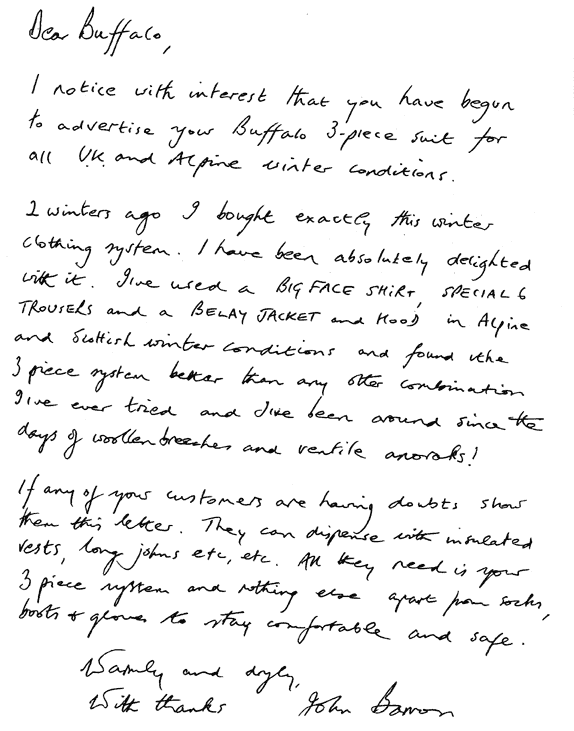 Dear Buffalo,
I notice with interest that you have begun
to advertise your Buffalo 3-piece suit for
all U.K. and Alpine winter conditions.
2 winters ago I bought exactly this winter
clothing system. I have been absolutely delighted
with it. I've used a BIG FACE SHIRT, SPECIAL 6
TROUSERS and a BELAY JACKET and HOOD in Alpine
and Scottish winter conditions and found the
3 piece system better than any other combination
I've ever tried and I've been around since the
days of woollen breeches and ventile anoraks!
If any of your customers are having doubts show
them this letter. They can dispense with insulated
vests, long johns etc, etc. All they need is your
3 piece system and nothing else apart from socks,
boots & gloves to stay comfortable and safe.
Warmly and dryly,
With thanks John Barron